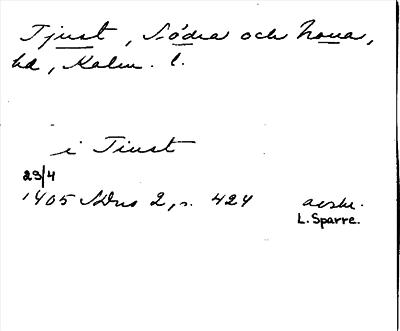 Tjust, Södra och Norra,
hd, Kalm. l.
i Tiust
29/4
1405 SDns 2, s. 424 avskr.
L. Sparre.